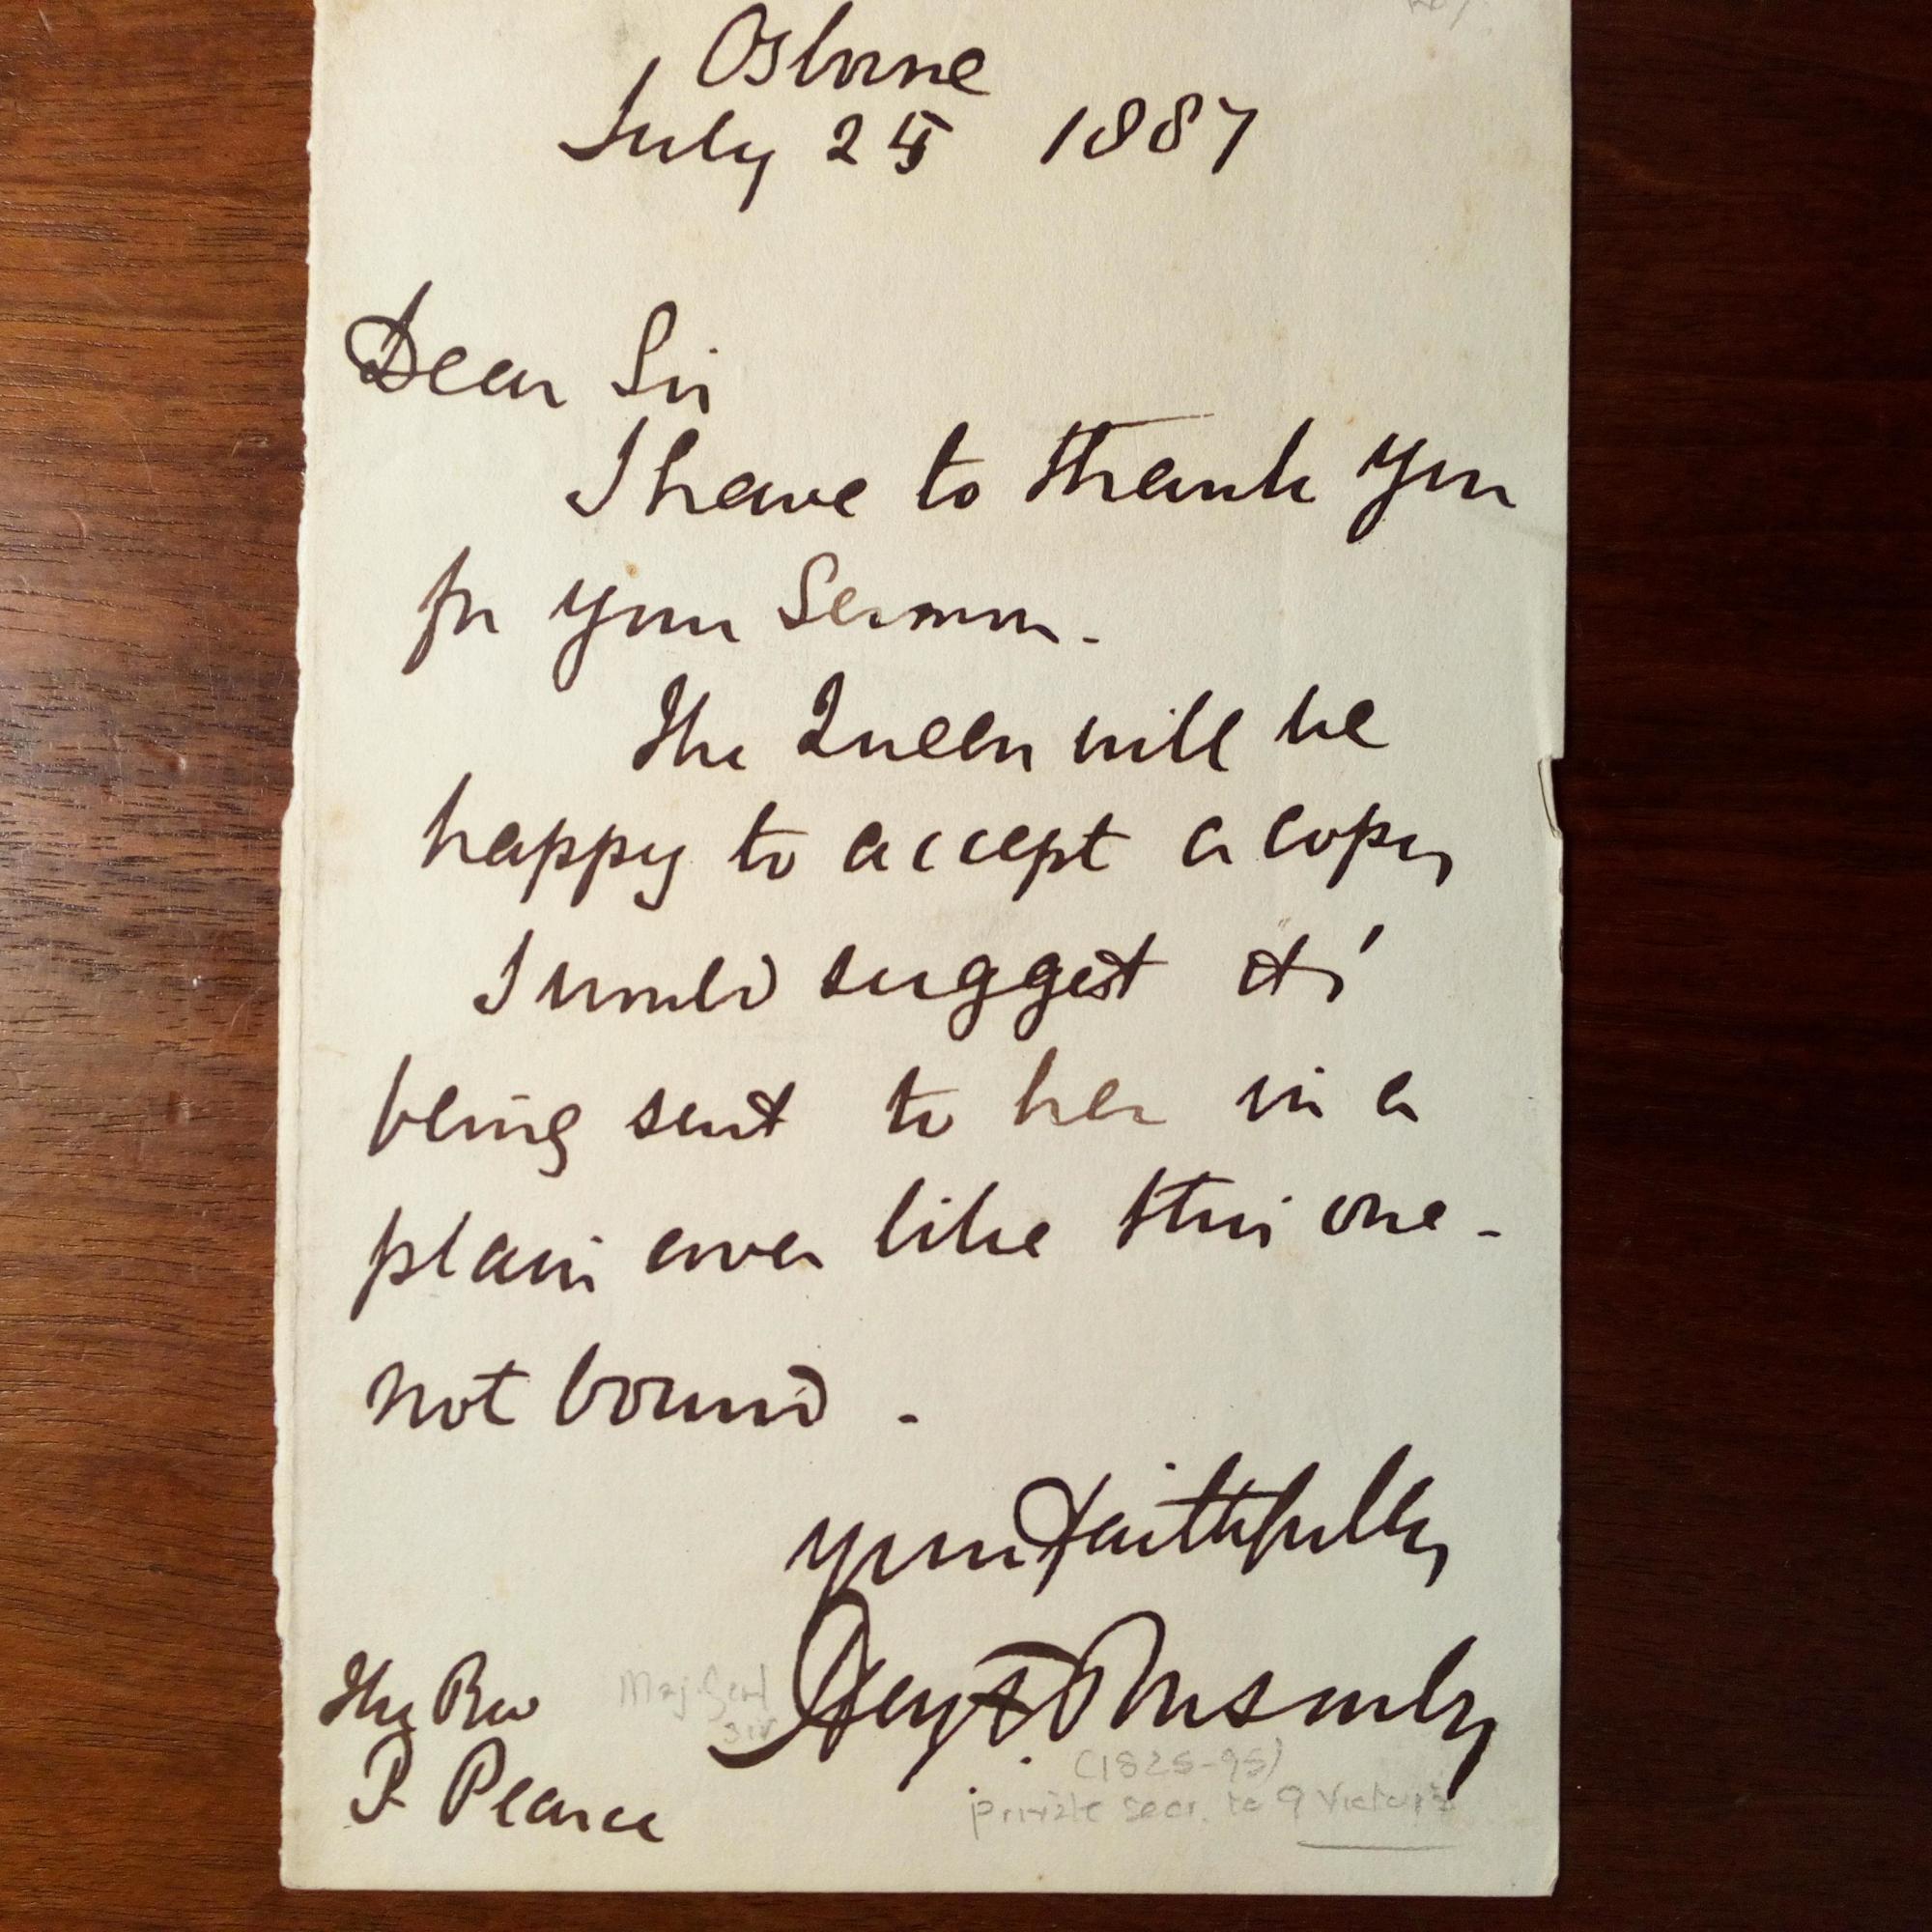 Osborne
July 25 1887
Dear Sir
I have to thank you
for your Sermon.
The Queen will be
happy to accept a copy
I would suggest its'
being sent to her in a
plain cover like this one -
not bound.
Yours faithfully
Henry F Ponsonby
The Rev
P Pearce
Maj Genl
Sir
(1825-95)
private secr. to Q Victoria